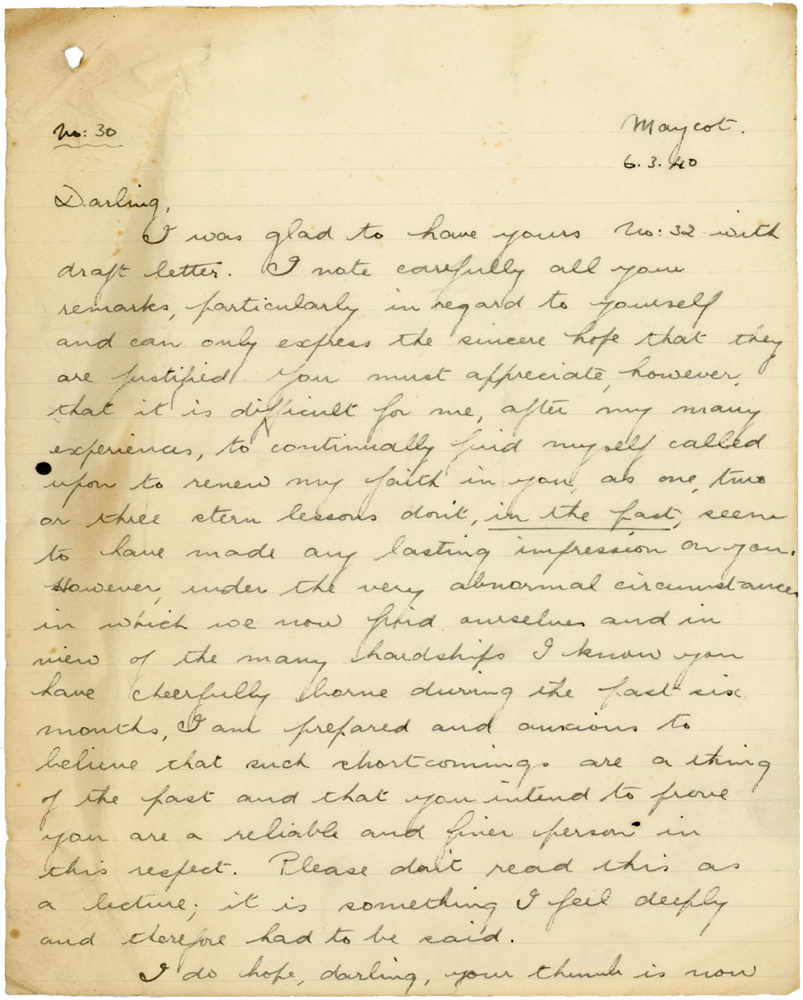 No: 30
Maycot.
6.3.40
Darling,
I was glad to have yours No: 32 with
draft letter. I note carefully all your
remarks, particularly in regard to yourself
and can only express the sincere hope that they
are justified. You must appreciate, however,
that it is difficult for me, after my many
experiences, to continually find myself called
upon to renew my faith in you, as one, two
or three stern lessons don't, in the past, seem
to have made any lasting impression on you.
However, under the very abnormal circumstances
in which we now find ourselves and in
view of the many hardships I know you
have cheerfully borne during the past six
months, I am prepared and anxious to
believe that such shortcomings are a thing
of the past and that you intend to prove
you are a reliable and finer person in
this respect. Please don't read this as
a lecture; it is something I feel deeply
and therefore had to be said.
I do hope, darling, your thumb is now